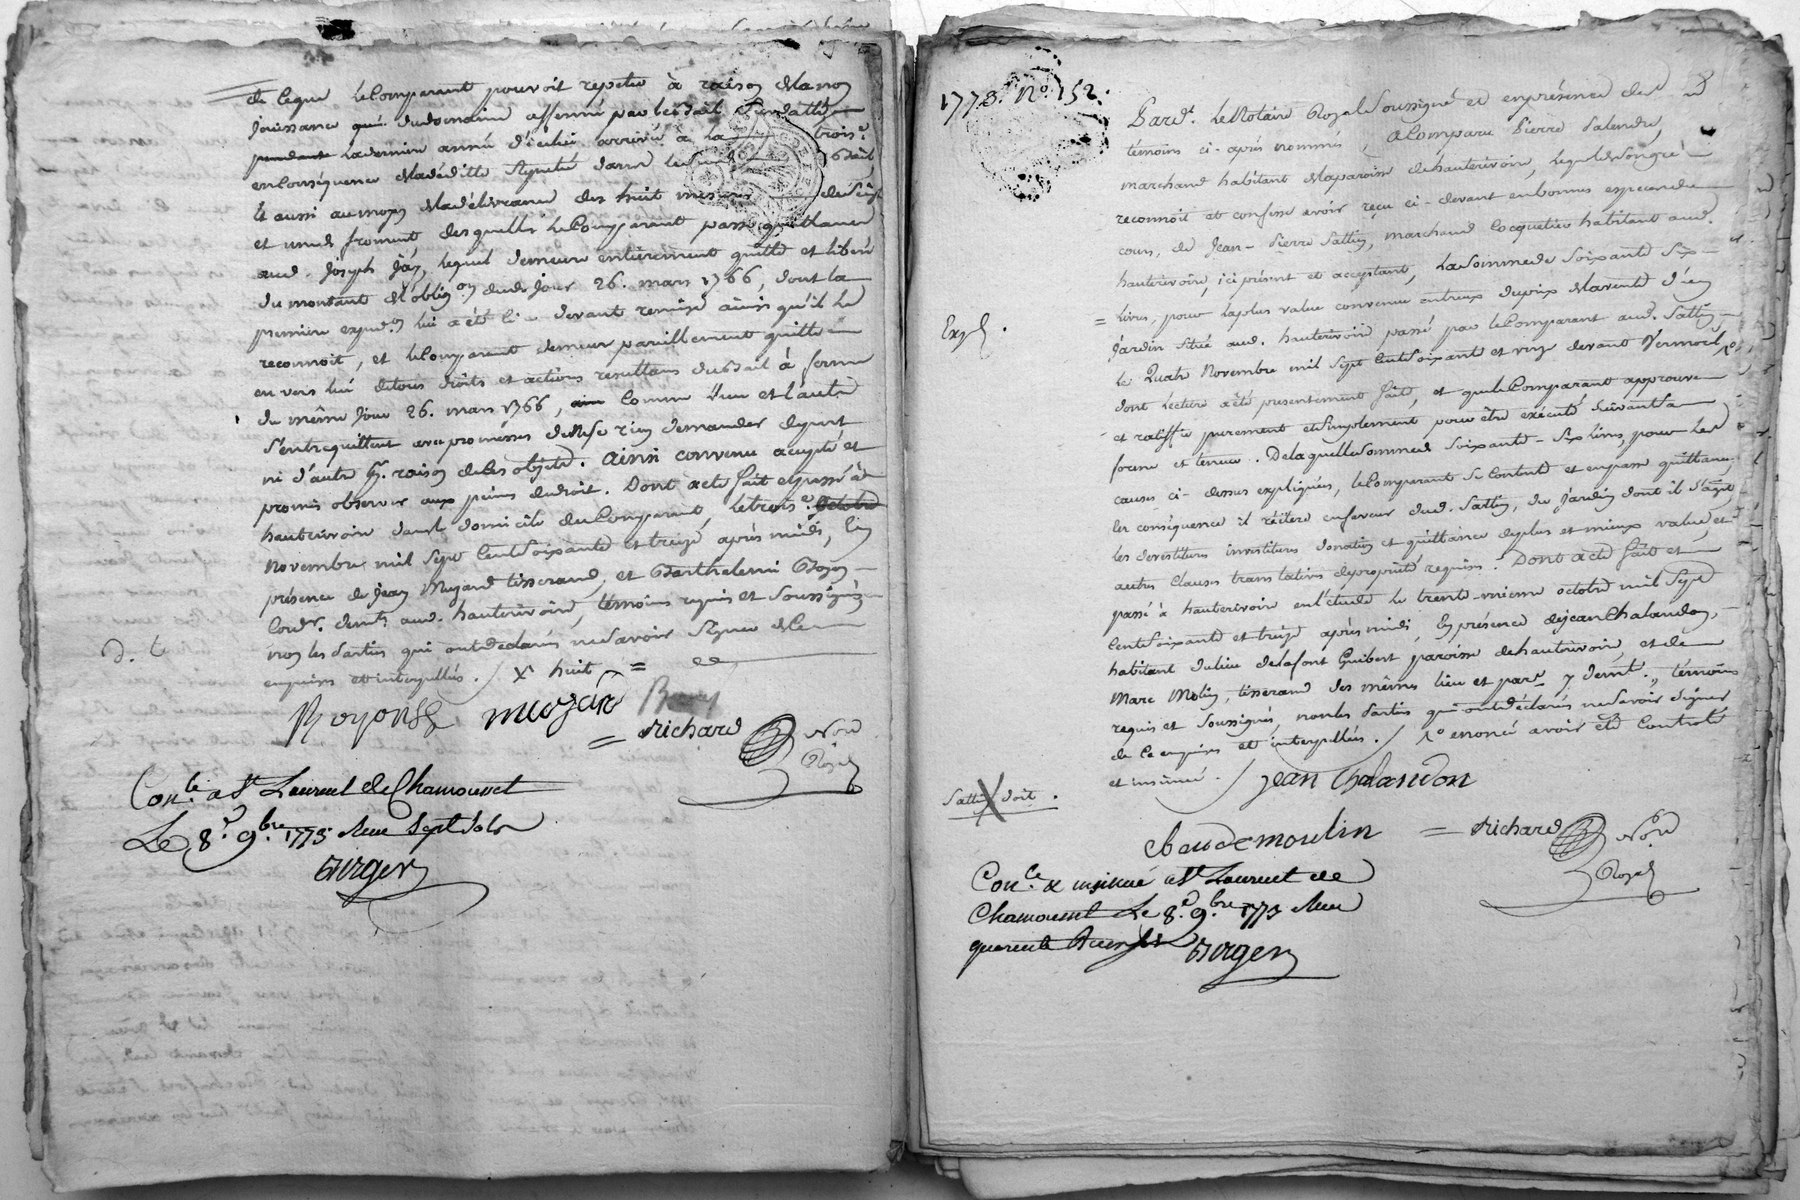 de ceque le Comparant pouvoit repeter à raison de la non
Jouissance du domaine affermé par led. bail
pendante la derniere année d'icelui arrivée à la trois.e
en Conséquence
et aussi au moyen de la délivrance des huit mesures
et une de froment desquelles le Comparant passe quittance
aud. Joseph Jay, lequel demeure entierement quitte et liberé
du montant de l'oblig.on dud. Jour 26. mars 1766, dont la
premiere exped.on lui a été ci-devant remise ainsi qu'il le
reconnoit, et le Comparant demeure pareillement quitte
envers lui de tous droits et actions resultans dud. bail à ferme
du même Jour 26. mars 1766, comme l'un et l'autre
s'entrequittent avec promesses de ne se rien demander de part
ni d'autre à raison de ces objets. ainsi convenu accepté et
promis observer aux peines de droit. Dont acte fait et passé à
hauterivoire dans le domicile du Comparant, le trois.e octobre
Novembre mil sept Cent Soixante et treize après midi, en
présence de Jean Muzard tisserand, et Barthelemi Boyon
Cord.r dem.ts aud. hauterivoire, témoins requis et Soussignés
non les Parties qui ont déclaré ne savoir signer de ce
enquises et interpellées. / X huit =
D. t.
Boyon muzard
= Richard Not.
Royal
Con.lé a S.t Laurent de Chamousset
Le 8.e 9.bre 1773 Reçu Sept sols
Virgery
1773. N.o 152.
Pard.t le Notaire Royal Soussigné et en présence des
témoins ci-après nommés, a Comparu Pierre Palandre,
marchand habitant de la paroisse de hauterivoire, lequel de son gré
reconnoit et confesse avoir reçu ci-devant en bonnes especes de
cours, de Jean-Pierre Sattin, marchand Cocquetier habitant aud.
hauterivoire, ici présent et acceptant, la Somme de Soixante Six
livres, pour la plus value convenue entreux du prix de la vente d'un
Expd.
Jardin situé aud. hauterivoire passé par le Comparant aud. Sattin
le Quatre Novembre mil Sept Cent Soixante et onze devant Vermorel
dont lecture a été presentement faite, et que le Comparant approuve
et ratiffie purement et Simplement pour être exécuté suivant sa
forme et teneur. De laquelle Somme de Soixante-Six livres, pour les
causes ci-dessus expliquées, le Comparant se Contente et en passe quittance,
en conséquence il réitere en faveur dud. Sattin, du Jardin dont il s'agit
les devestiture investiture donation et quittance de plus et mieux value, et
autres clauses translatives de propriété requises. Dont acte fait et
passé à hauterivoire en l'étude le trente-unieme octobre mil Sept
Cent Soixante et treize après midi, En présence de Jean Chalandon,
habitant du lieu de la font Guibert paroisse de hauterivoire, et de
Marc Molin, tisserand des mêmes lieu et par.se y dem.t, témoins
requis et Soussignés, non les Parties qui ont déclaré ne savoir signer
de ce enquises et interpellées. / enoncé avoir été Controlé
et insinué. / Jean Chalandon
Sattin doit.
Claude moulin = Richard Not.
Royal
Con.lé & insinué a S.t Laurent de
Chamousset Le 8.e 9.bre 1773 Reçu
quarante
Virgery